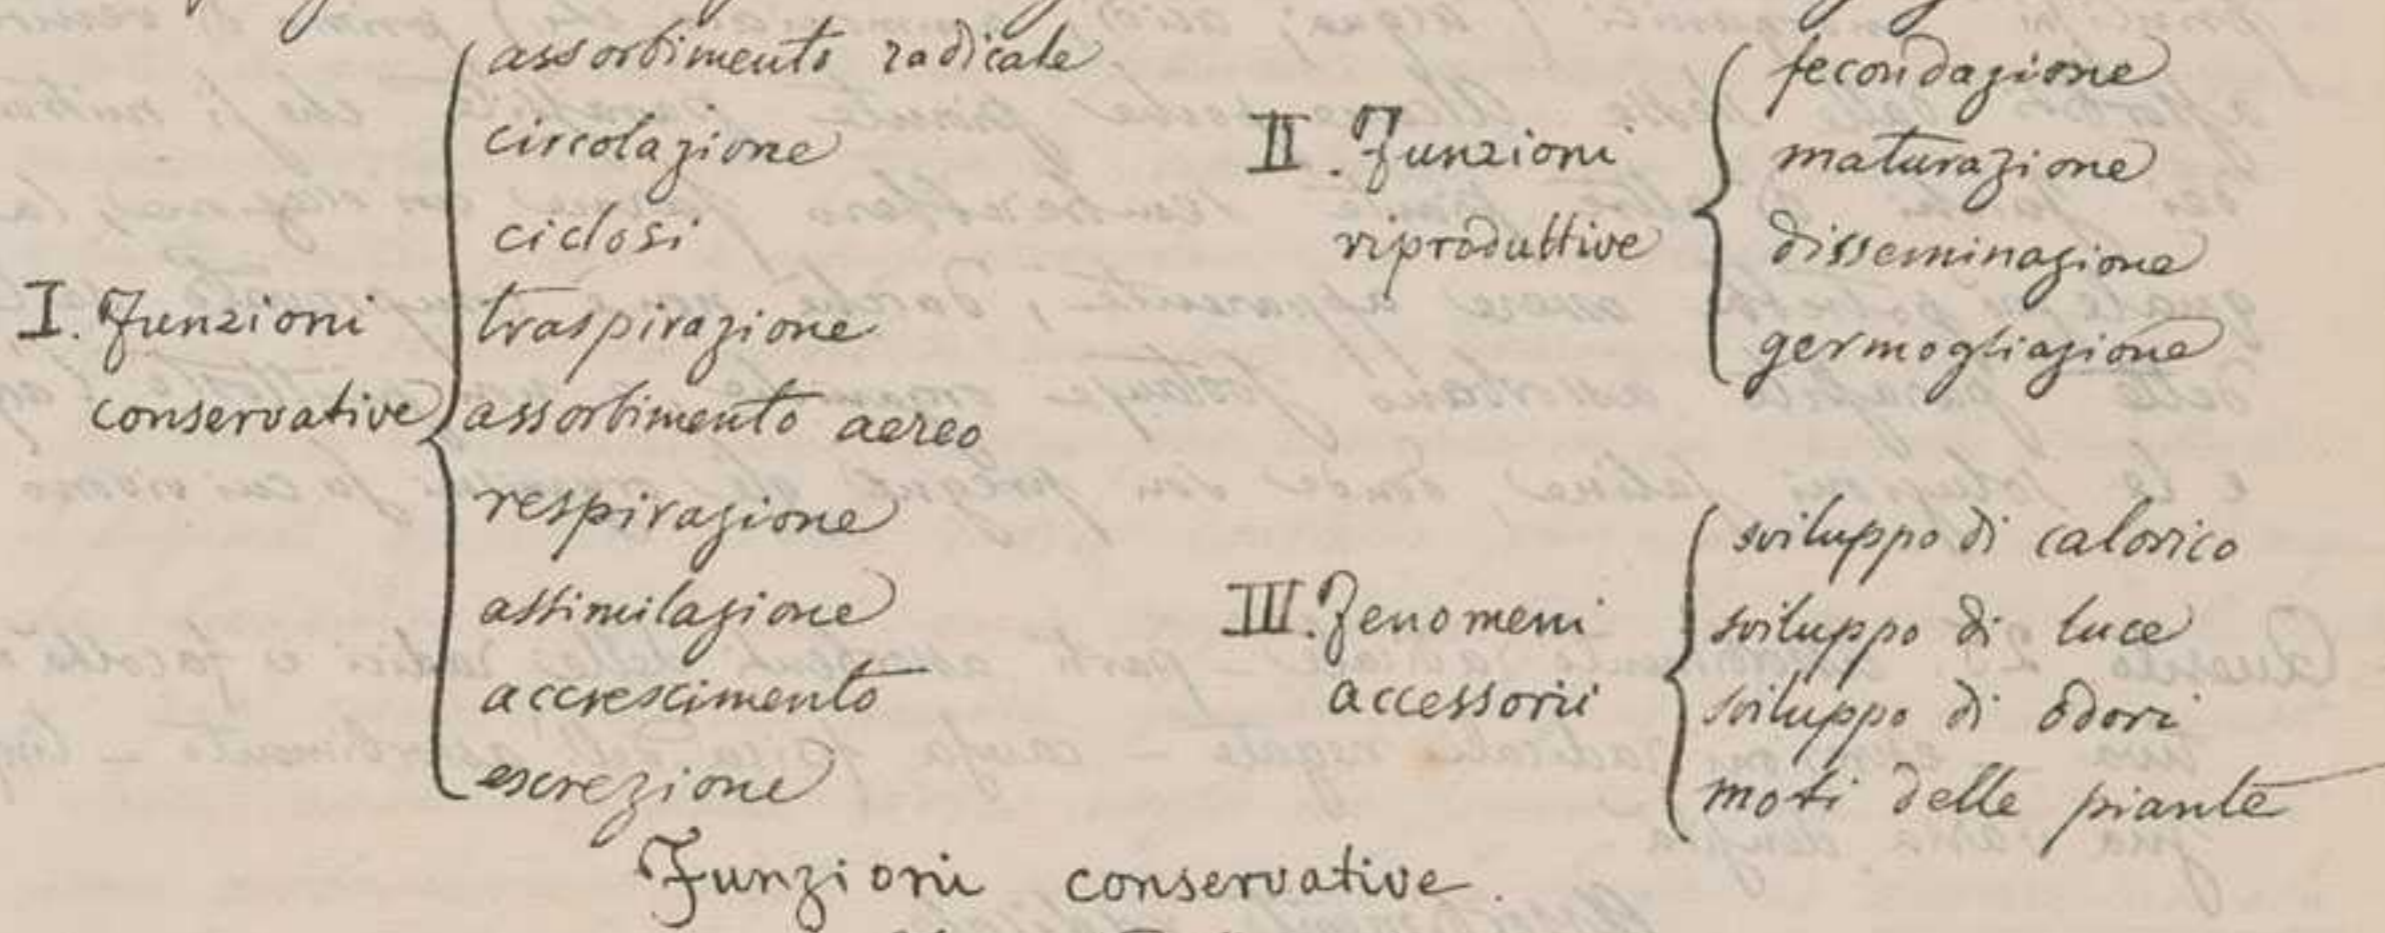 I. Funzioni
conservative
assorbimento radicale
circolazione
ciclosi
traspirazione
assorbimento aereo
respirazione
assimilazione
accrescimento
escrezione
II. Funzioni
riproduttive
fecondazione
maturazione
disseminazione
germogliazione
III. Fenomeni
accessorii
sviluppo di calorico
sviluppo di luce
sviluppo di odori
moti delle piante
Funzioni conservative.